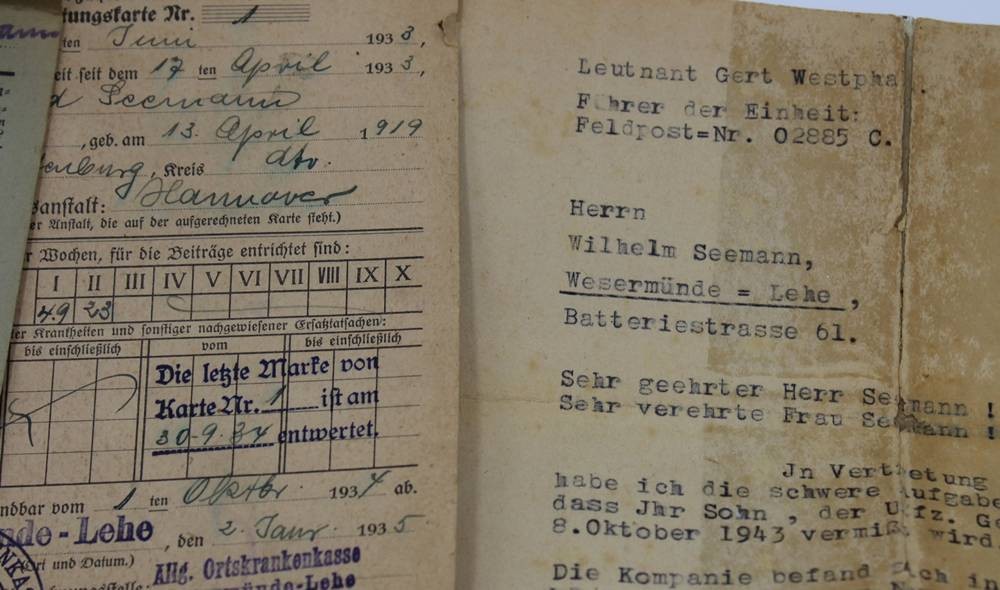 tungskarte Nr. 1
ten Juni 1933,
eit seit dem 17 ten April 1933,
d Seemann
, geb. am 13. April 1919
enburg, Kreis dto.
sanstalt: Hannover
er Anstalt, die auf der aufgerechneten Karte steht.)
r Wochen, für die Beiträge entrichtet sind:
I II III IV V VI VII VIII IX X
49 23
der Krankheiten und sonstiger nachgewiesener Ersatztatsachen:
bis einschließlich vom bis einschließlich
Die letzte Marke von
Karte Nr. 1 ist am
30.9.34 entwertet.
ndbar vom 1 ten Oktbr. 1934 ab.
nde-Lehe, den 2. Janr. 1935
Ort und Datum.)
Allg. Ortskrankenkasse
münde-Lehe
Leutnant Gert Westpha
Führer der Einheit:
Feldpost=Nr. 02885 C.
Herrn
Wilhelm Seemann,
Wesermünde = Lehe ,
Batteriestrasse 61.
Sehr geehrter Herr Seemann !
Sehr verehrte Frau Seemann !
Jn Vertretung
habe ich die schwere Aufgabe
dass Jhr Sohn , der Uffz. Ge
8.Oktober 1943 vermißt wird
Die Kompanie befand sich in